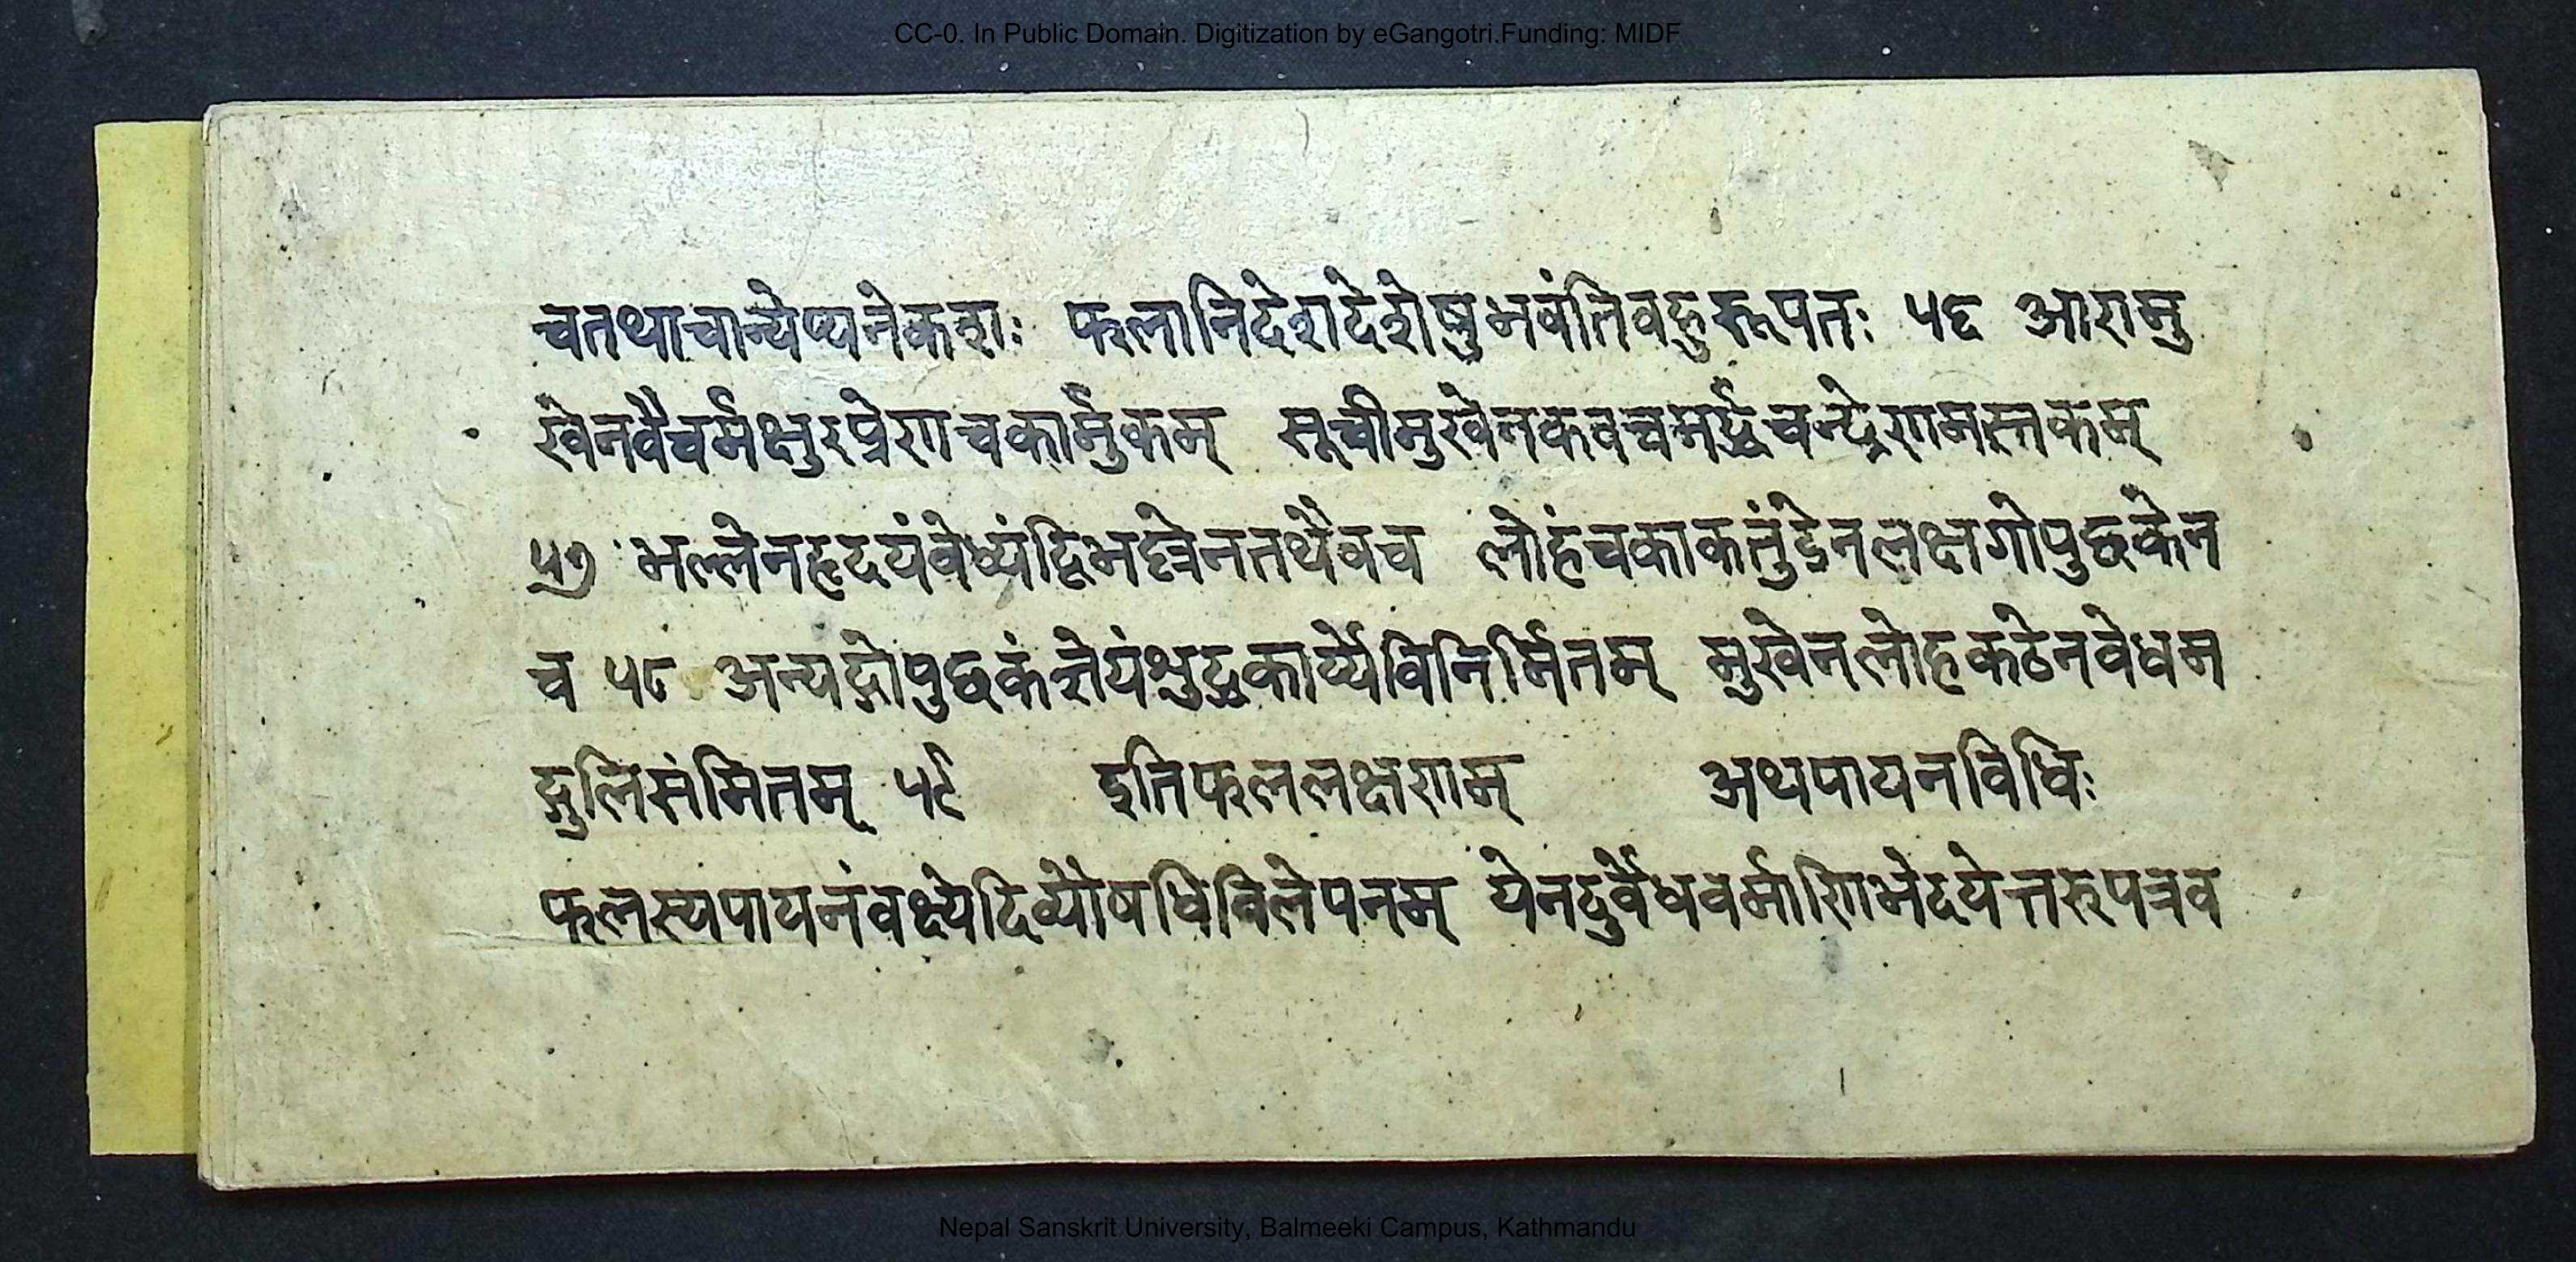 CC-0. In Public Domain. Digitization by eGangotri.Funding: MIDF
चतथाचान्येप्यनेकशः फलानिदेशदेशेषुभवंतिवहुरूपतः ५६ आरामु
खेनवैचर्मक्षुरप्रेणचकार्मुकम् सूचीमुखेनकवचमर्द्धचन्द्रेणमस्तकम्
५७ भल्लेनहृदयंवेध्यंद्विभल्लेनतथैवच लोहंचकाकतुंडेनलक्षगोपुछकेन
च ५८ अन्यद्गोपुछकंज्ञेयंशुद्धकार्ष्येविनिर्मितम् मुखेनलोहकठेनवेधम
ङ्गुलिसंमितम् ५९ इतिफललक्षणम् अथपायनविधिः
फलस्यपायनंवक्ष्येदिव्यौषधिविलेपनम् येनदुर्वेधवर्माणिभेदयेत्तरुपत्रव
Nepal Sanskrit University, Balmeeki Campus, Kathmandu